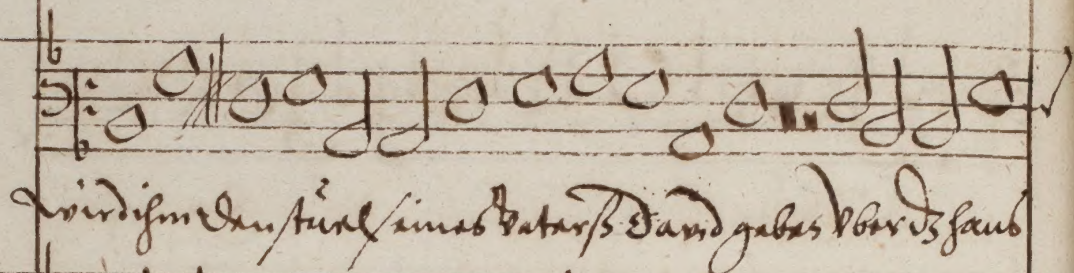 wird ihm den stuel seines Vaterß David geben Vber dz haus